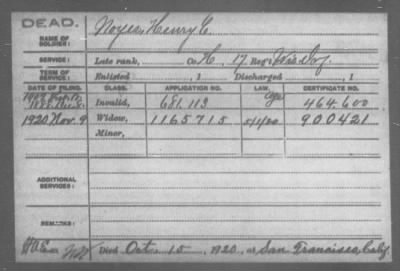 DEAD.
NAME OF SOLDIER: Noyes, Henry C.
SERVICE: Late rank, Co. H, 17 Reg't Wis. Inf.
TERM OF SERVICE: Enlisted , 1 Discharged , 1
DATE OF FILING. CLASS. APPLICATION NO. LAW. CERTIFICATE NO.
Invalid, 681.113 464.600
1920 Nov. 9 Widow, 1165715 5/1/20 900421
Minor,
ADDITIONAL SERVICES:
REMARKS:
Died Oct. 15, 1920, at San Francisco, Calif